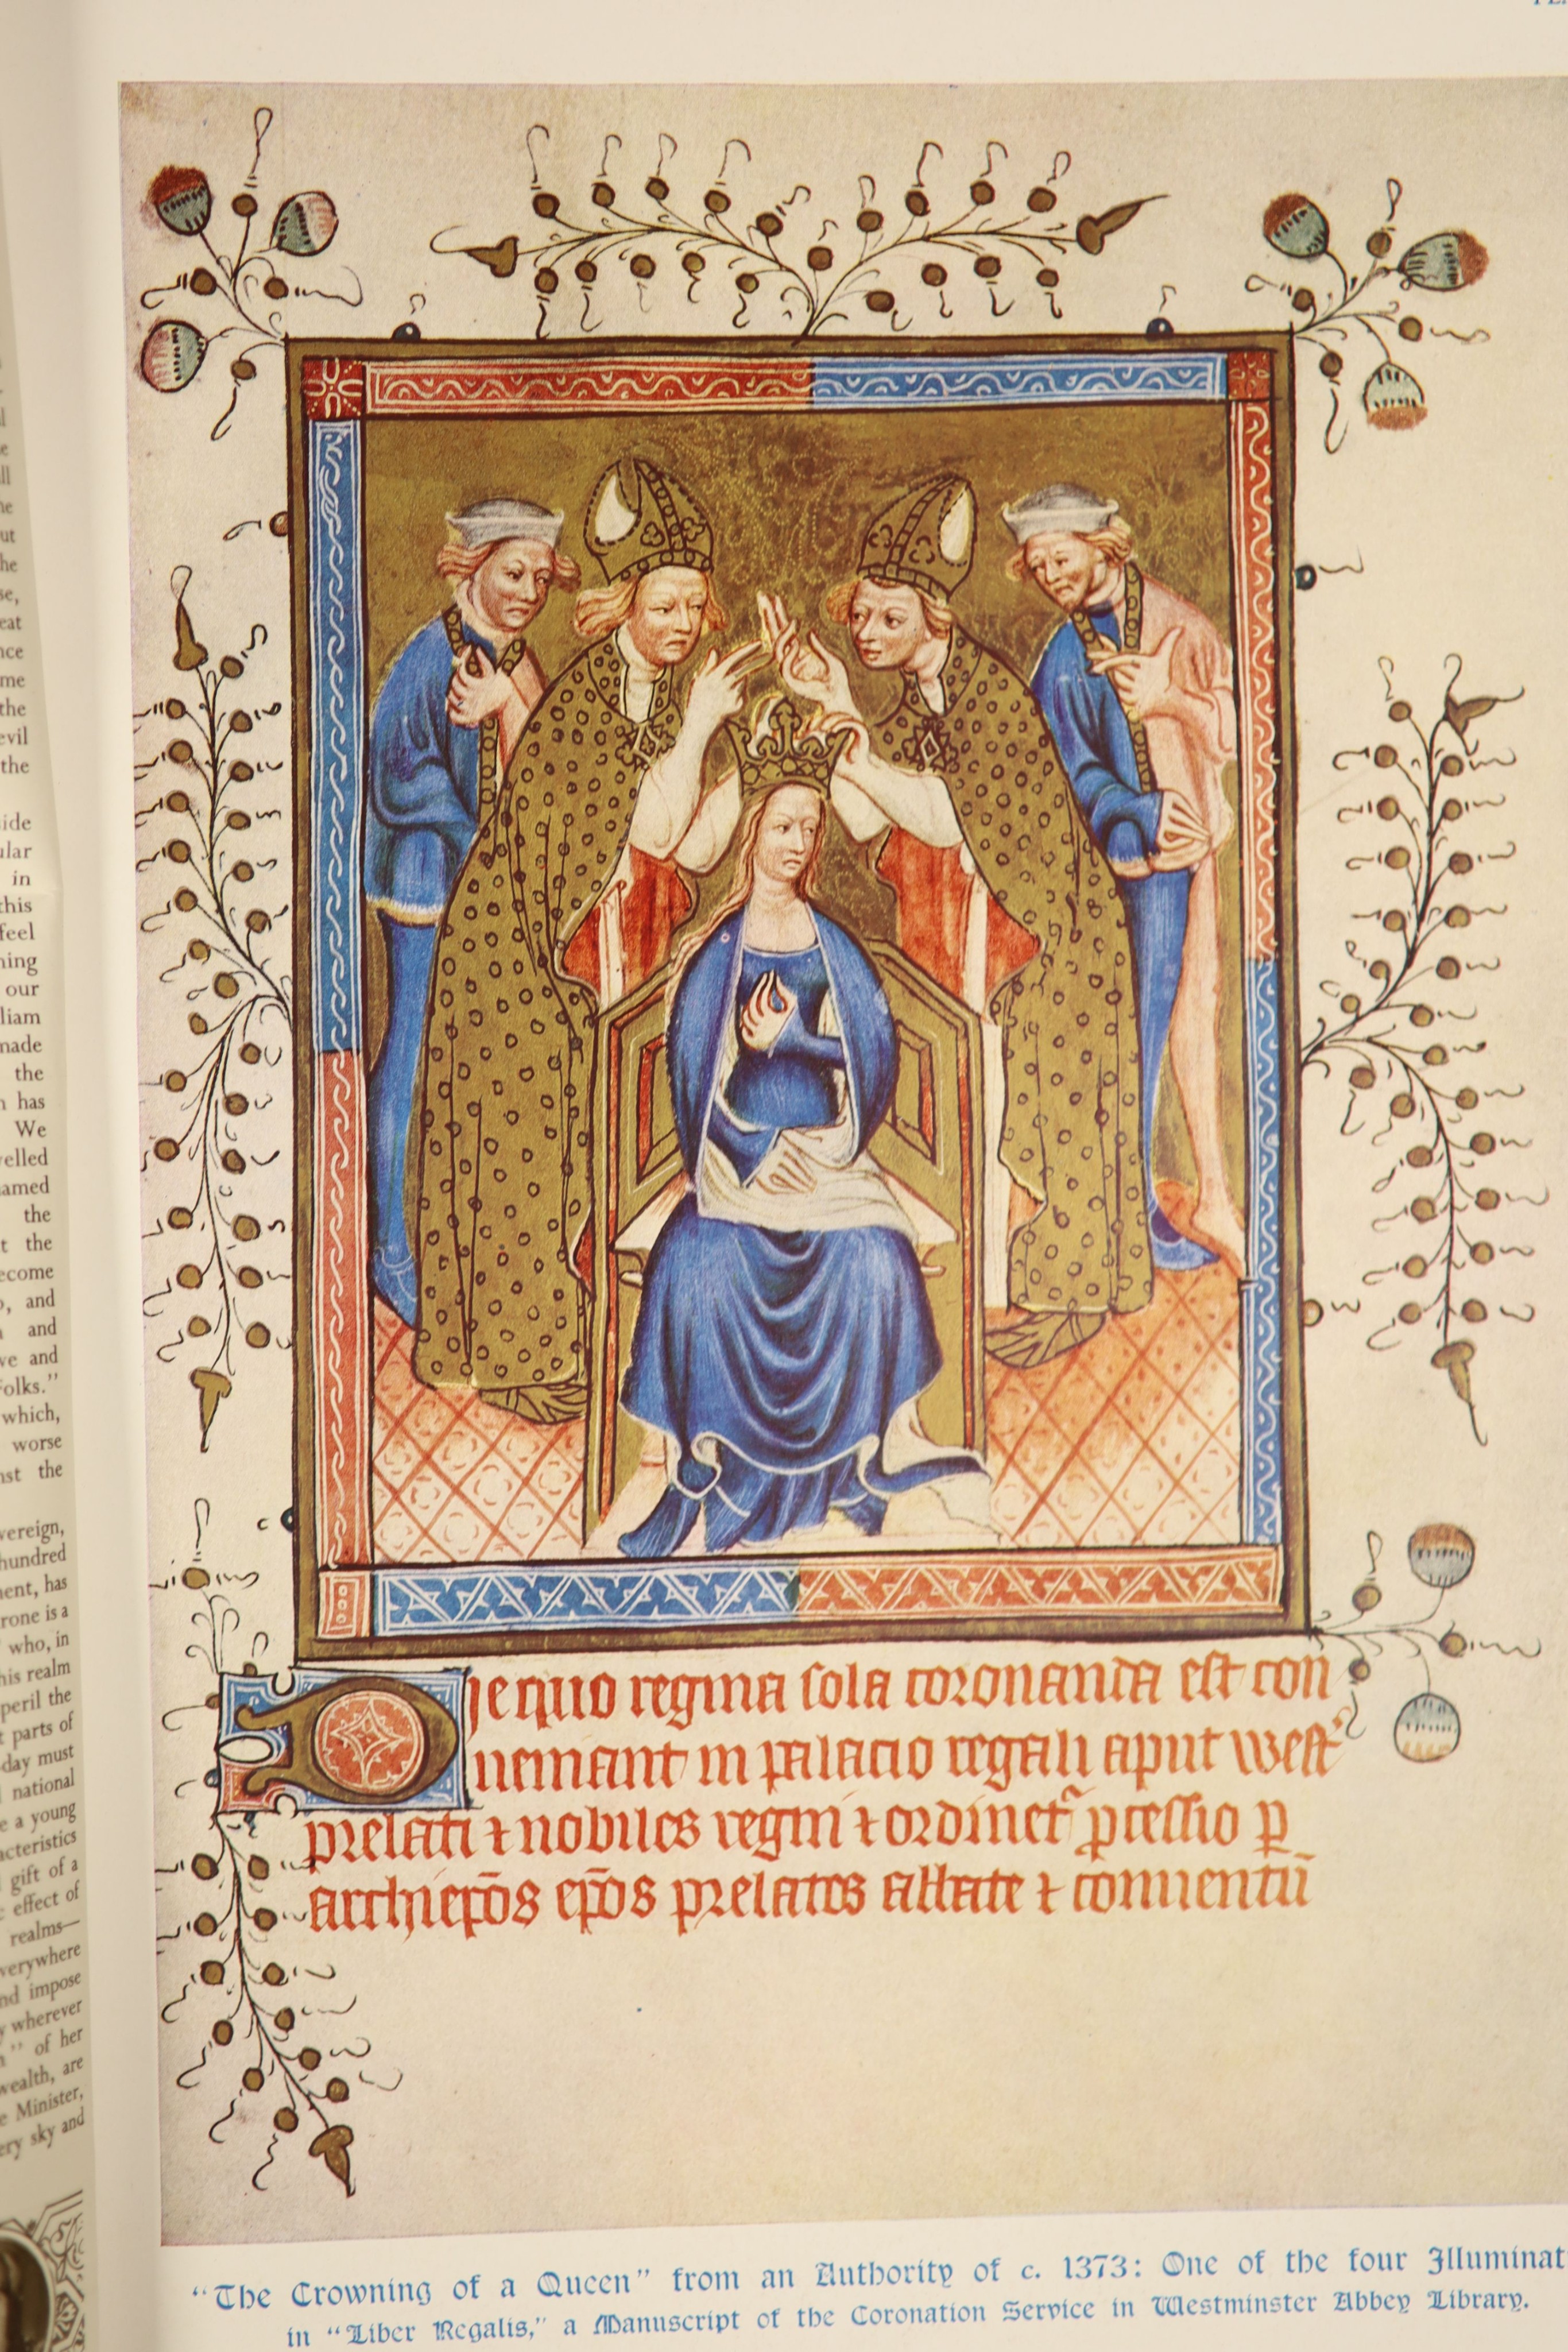 he
se,
eat
nce
me
the
evil
the
side
ular
in
this
feel
ning
our
liam
made
the
has
We
velled
named
the
t the
ecome
, and
and
ve and
Folks."
which,
worse
nst the
vereign,
hundred
ment, has
rone is a
who, in
his realm
peril the
t parts of
-day must
national
e a young
acteristics
gift of a
effect of
realms—
verywhere
nd impose
y wherever
" of her
wealth, are
e Minister,
ery sky and
Die quo regina sola coronanda est con
ueniant in palacio regali aput westͬ
prelati ⁊ nobiles regni ⁊ ordinetᷣ ꝓcessio ꝑ
archiep̄os ep̄os prelatos abbate ⁊ conuentū
"The Crowning of a Queen" from an Authority of c. 1373: One of the four Illuminat
in "Liber Regalis," a Manuscript of the Coronation Service in Westminster Abbey Library.